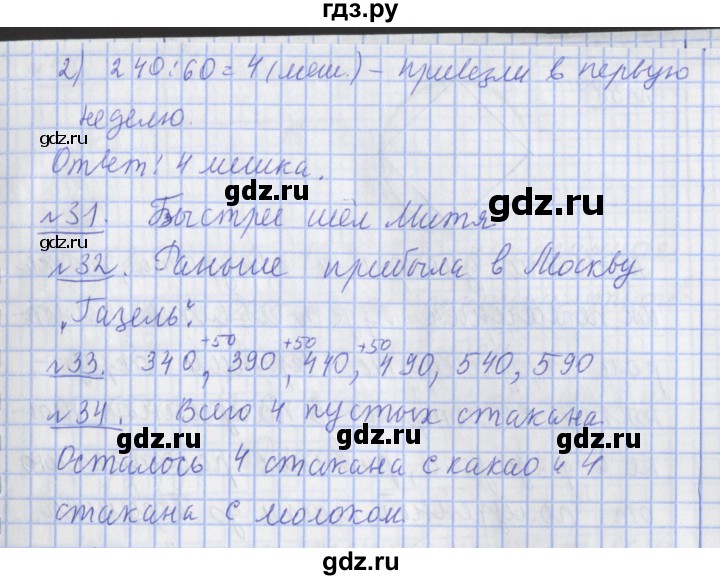 гдз.ру
2) 240:60=4(меш.) - привезли в первую
gdz.ru
неделю.
gdz.ru
Ответ: 4 мешка.
gdz.ru
gdz.ru
№31. Быстрее шёл Митя
gdz.ru
№32. Раньше прибыла в Москву
„Газель“.
gdz.ru
gdz.ru
+50 +50 +50
№33. 340, 390, 440, 490, 540, 590
gdz.ru
№34. Всего 4 пустых стакана
gdz.ru
gdz.ru
Осталось 4 стакана с какао и 4
стакана с молоком
gdz.ru
gdz.ru